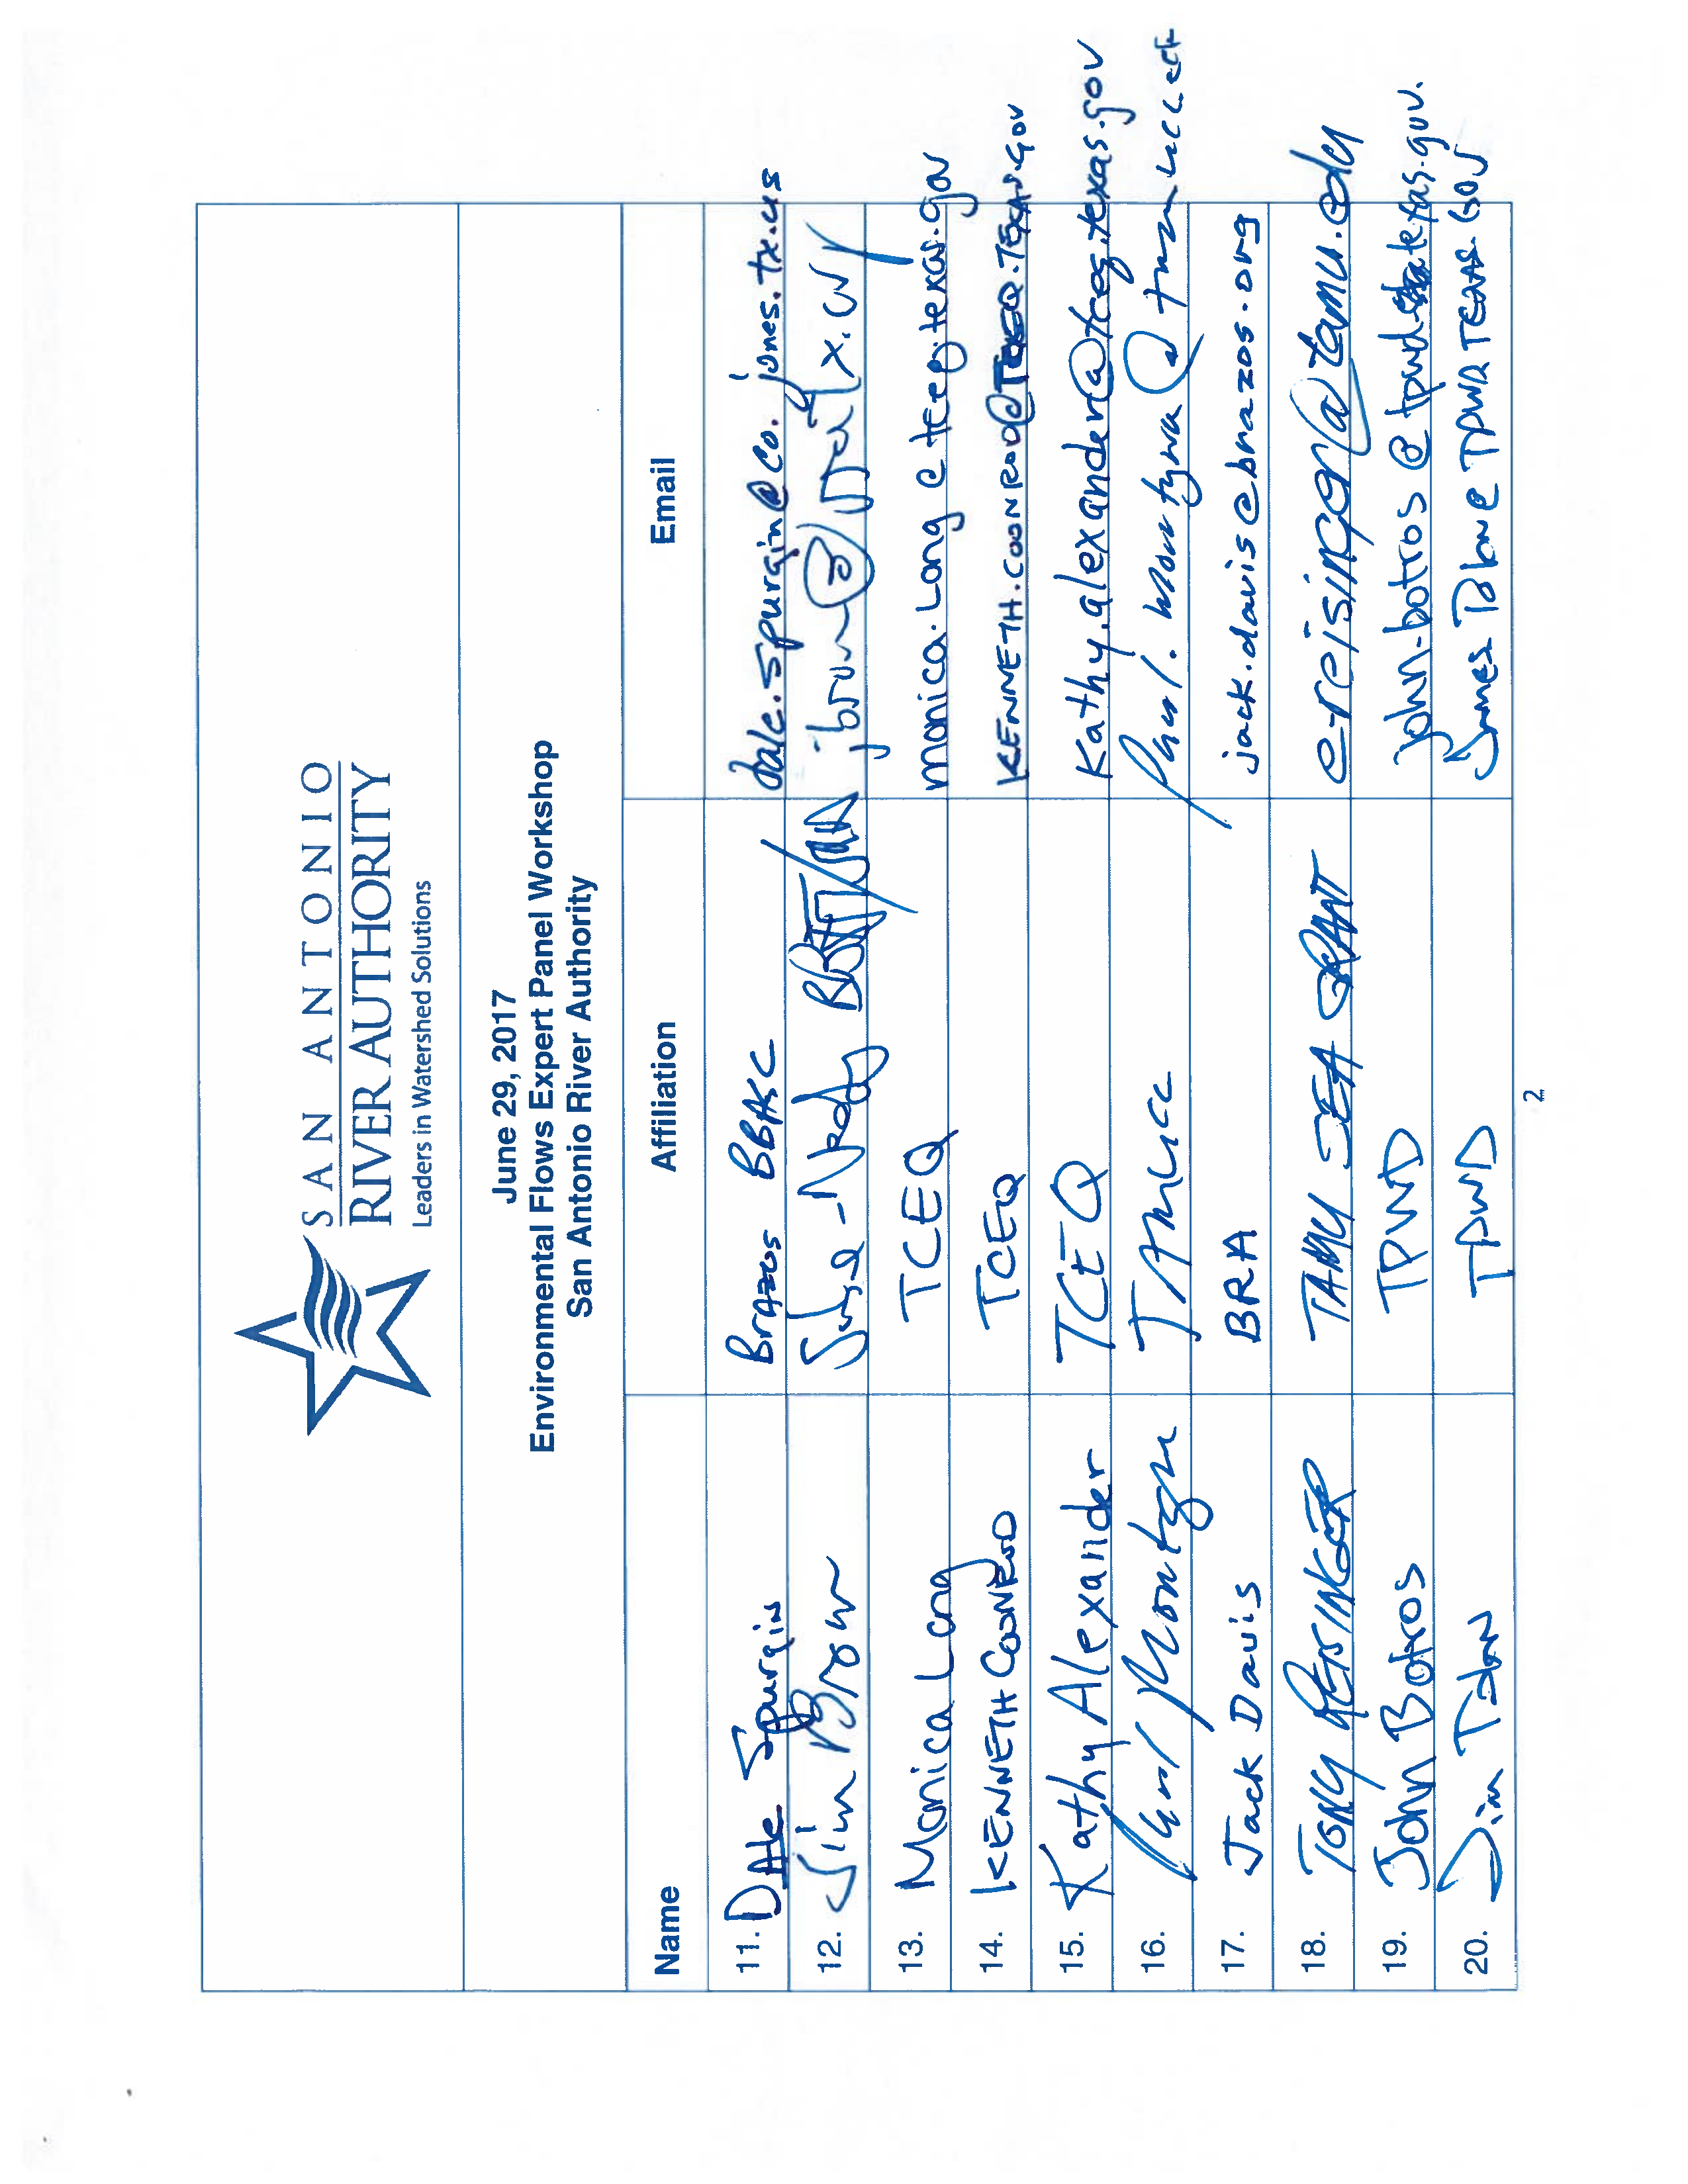 SAN ANTONIO
RIVER AUTHORITY
Leaders in Watershed Solutions
June 29, 2017
Environmental Flows Expert Panel Workshop
San Antonio River Authority
Name Affiliation Email
11. Dale Spurgin Brazos BBASC dale.spurgin@co.jones.tx.us
12. Jim Brow
13. Monica Long TCEQ monica.long@tceq.texas.gov
14. KENNETH COONROD TCEQ KENNETH.COONROD@TCEQ.TEXAS.GOV
15. Kathy Alexander TCEQ Kathy.alexander@tceq.texas.gov
16. Paul Montagna TAMUCC Paul.Montagna@tamucc.edu
17. Jack Davis BRA jack.davis@brazos.org
18. TONY REISINGER TAMU SEA GRANT e-reisinger@tamu.edu
19. John Botros TPWD john.botros@tpwd.texas.gov.
20. Jim Tolan TPWD James.Tolan@TPWD.TEXAS.GOV
2